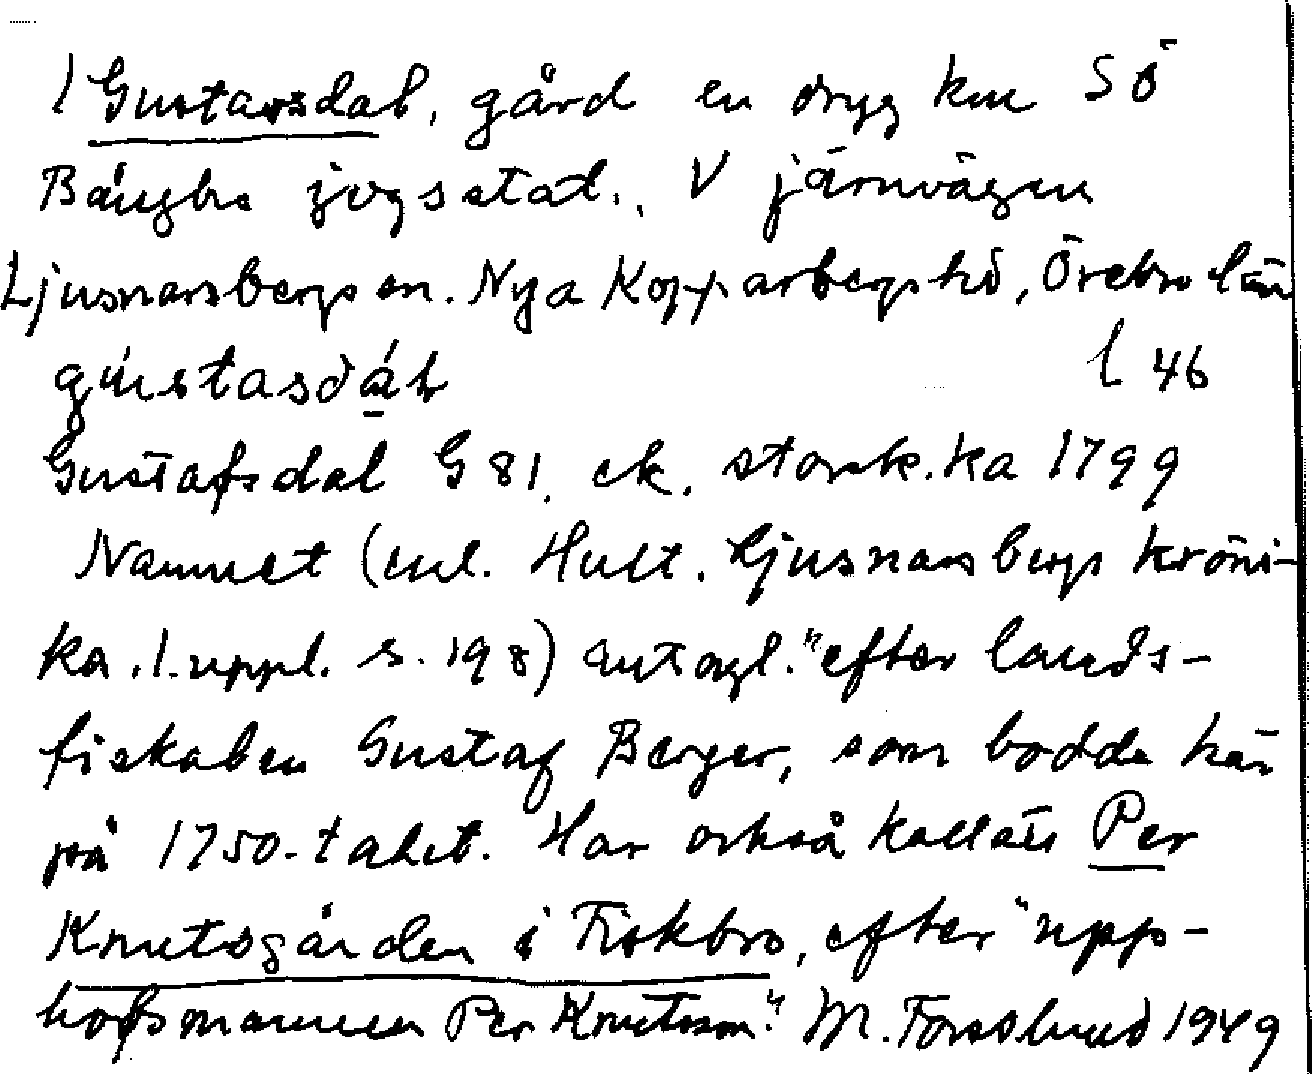 1 Gustavsdal, gård en dryg km SÖ
Bångbro jvgsstat., V järnvägen
Ljusnarsbergs sn. Nya Kopparbergs hd, Örebro län
gústasdàl l 46
Gustafsdal G 81, ek. storsk.ka 1799
Namnet (enl. Hult. Ljusnarsbergs kröni-
ka, 1. uppl. s. 198) antagl. "efter lands-
fiskalen Gustaf Berger, som bodde här
på 1750-talet. Har också kallats Per
Knutsgården i Fiskbro, efter "upp-
hofsmannen Per Knutsson". M. Forsslund 1949